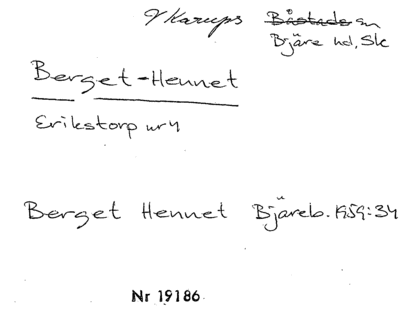 V Karups Båstads sn
Bjäre hd, Sk
Berget-Hennet
Erikstorp nr 4
Berget Hennet Bjäreb. 1959:34
Nr 19186